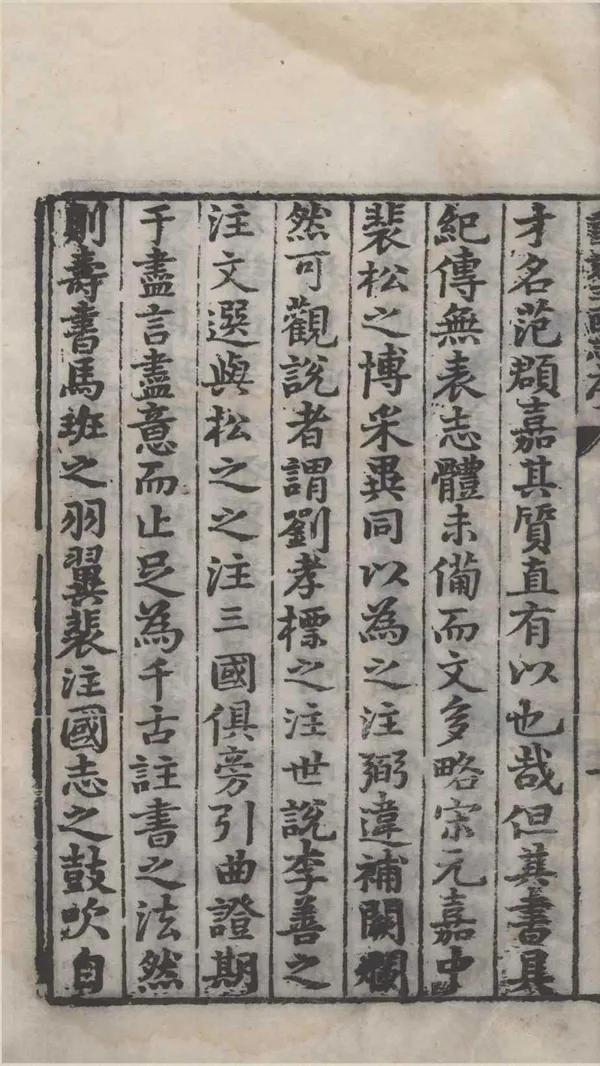 才名范頵嘉其質直有以也哉但其書具
紀傳無表志體未備而文多略宋元嘉中
裴松之博采異同以為之注彌違補闕爛
然可觀說者謂劉孝標之注世說李善之
注文選與松之之注三國俱旁引曲證期
于盡言盡意而止足為千古註書之法然
則壽書馬班之羽翼裴注國志之鼓吹自